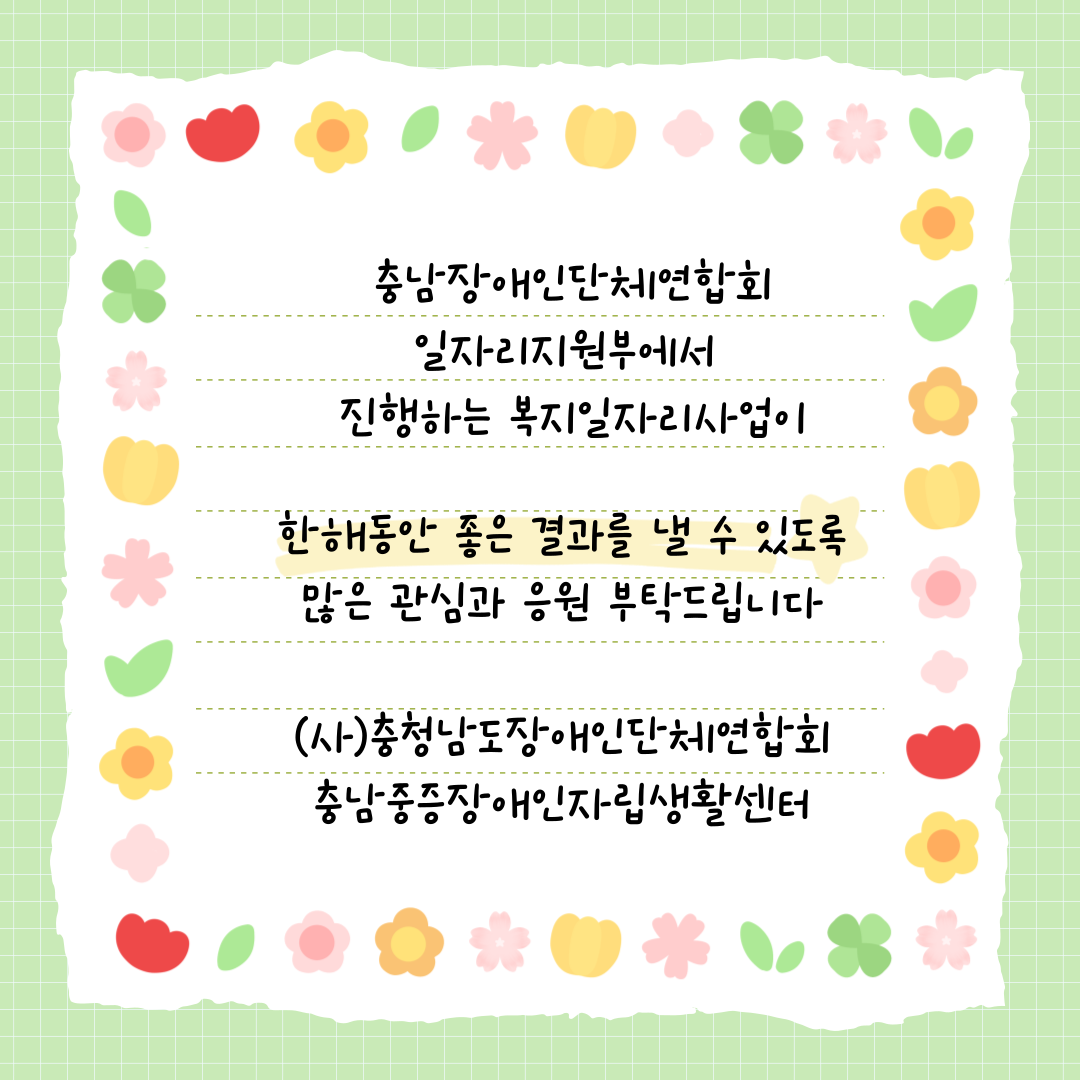 충남장애인단체연합회
일자리지원부에서
진행하는 복지일자리사업이
한해동안 좋은 결과를 낼 수 있도록
많은 관심과 응원 부탁드립니다
(사)충청남도장애인단체연합회
충남중증장애인자립생활센터